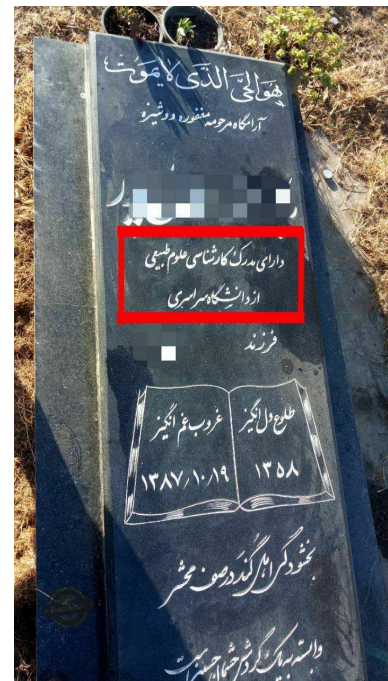 هوالحی الذی لایموت
آرامگاه مرحومه مغفوره دوشیزه
دارای مدرک کارشناسی علوم طبیعی
از دانشگاه سراسری
فرزند
طلوع دل انگیز
۱۳۵۸
غروب غم انگیز
۱۳۸۷/۱۰/۱۹
در صف محشر
وابسته به یک گردش چشمان حسین است